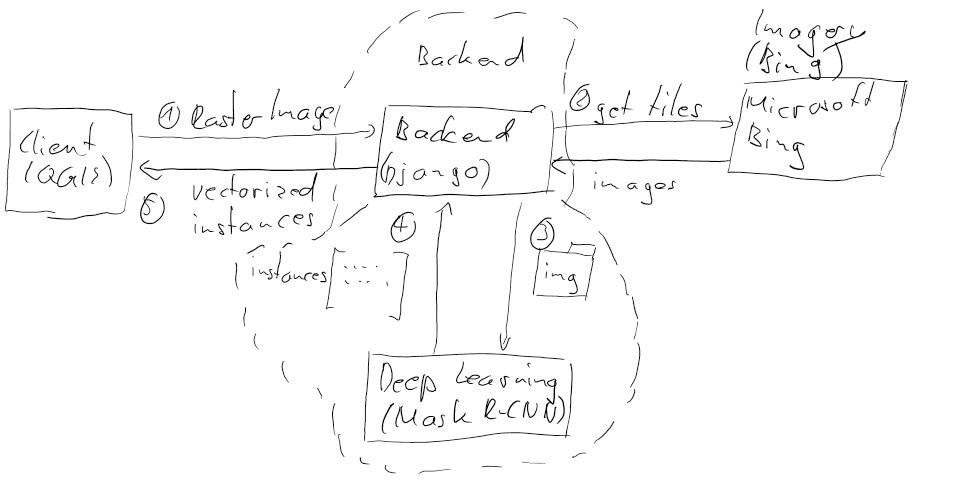 Backend
Imagery
(Bing)
Client
(QGIS)
① Raster Image
Backend
(Django)
② get tiles
Microsoft
Bing
images
⑤ vectorized
instances
④
instances [ ]
③
img
Deep Learning
(Mask R-CNN)